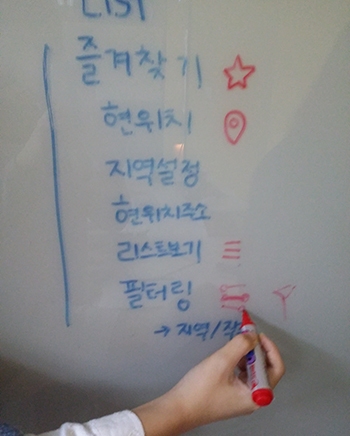 LIST
즐겨찾기
현위치
지역설정
현위치주소
리스트보기
필터링
→ 지역/